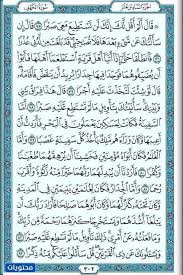 الجزء السادس عشر سورة الكهف
۞ قَالَ أَلَمْ أَقُل لَّكَ إِنَّكَ لَن تَسْتَطِيعَ مَعِيَ صَبْرًا ٧٥ قَالَ إِن
سَأَلْتُكَ عَن شَيْءٍ بَعْدَهَا فَلَا تُصَٰحِبْنِي قَدْ بَلَغْتَ مِن لَّدُنِّي عُذْرًا
٧٦ فَٱنطَلَقَا حَتَّىٰٓ إِذَآ أَتَيَآ أَهْلَ قَرْيَةٍ ٱسْتَطْعَمَآ أَهْلَهَا فَأَبَوْا۟ أَن
يُضَيِّفُوهُمَا فَوَجَدَا فِيهَا جِدَارًا يُرِيدُ أَن يَنقَضَّ فَأَقَامَهُۥ
قَالَ لَوْ شِئْتَ لَتَّخَذْتَ عَلَيْهِ أَجْرًا ٧٧ قَالَ هَٰذَا فِرَاقُ بَيْنِي
وَبَيْنِكَ سَأُنَبِّئُكَ بِتَأْوِيلِ مَا لَمْ تَسْتَطِع عَّلَيْهِ صَبْرًا ٧٨ أَمَّا
ٱلسَّفِينَةُ فَكَانَتْ لِمَسَٰكِينَ يَعْمَلُونَ فِي ٱلْبَحْرِ فَأَرَدتُّ أَنْ أَعِيبَهَا
وَكَانَ وَرَآءَهُم مَّلِكٌ يَأْخُذُ كُلَّ سَفِينَةٍ غَصْبًا ٧٩ وَأَمَّا
ٱلْغُلَٰمُ فَكَانَ أَبَوَاهُ مُؤْمِنَيْنِ فَخَشِينَآ أَن يُرْهِقَهُمَا طُغْيَٰنًا
وَكُفْرًا ٨٠ فَأَرَدْنَآ أَن يُبْدِلَهُمَا رَبُّهُمَا خَيْرًا مِّنْهُ زَكَوٰةً وَأَقْرَبَ
رُحْمًا ٨١ وَأَمَّا ٱلْجِدَارُ فَكَانَ لِغُلَٰمَيْنِ يَتِيمَيْنِ فِي ٱلْمَدِينَةِ
وَكَانَ تَحْتَهُۥ كَنزٌ لَّهُمَا وَكَانَ أَبُوهُمَا صَٰلِحًا فَأَرَادَ رَبُّكَ أَن
يَبْلُغَآ أَشُدَّهُمَا وَيَسْتَخْرِجَا كَنزَهُمَا رَحْمَةً مِّن رَّبِّكَ
وَمَا فَعَلْتُهُۥ عَنْ أَمْرِي ذَٰلِكَ تَأْوِيلُ مَا لَمْ تَسْطِع عَّلَيْهِ صَبْرًا
٨٢ وَيَسْـَٔلُونَكَ عَن ذِي ٱلْقَرْنَيْنِ قُلْ سَأَتْلُوا۟ عَلَيْكُم مِّنْهُ ذِكْرًا ٨٣
٣٠٢
محتويات